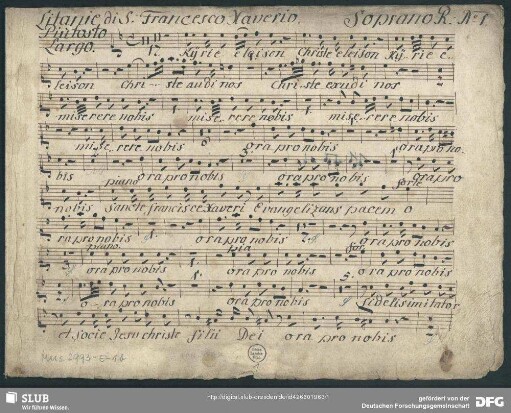 Litanie di S. Francesco Xaverio. Soprano R. No 1.
Piutosto
Largo.
1. Kyrie eleison Christe eleison Kyrie e-
leison Chri--ste audi nos Chri-ste exaudi nos
miserere nobis mise-rere nobis mise-rere nobis
mise-rere nobis ora pro nobis ora pro no-
bis ora pro nobis ora pro nobis ora pro
piano forte
nobis Sancte francisce Xaveri Evangelizans pacem o
ra pro nobis 1. ora pro nobis 2. ora pro nobis
piano. pia for
3. ora pro nobis 1. ora pro nobis 5. ora pro nobis
o-ra pro nobis ora pro nobis fidelis imitator
et Socie Jesu christe filii Dei ora pro nobis
SLUB
Wir führen Wissen.
gefördert von der
Deutschen Forschungsgemeinschaft
DFG